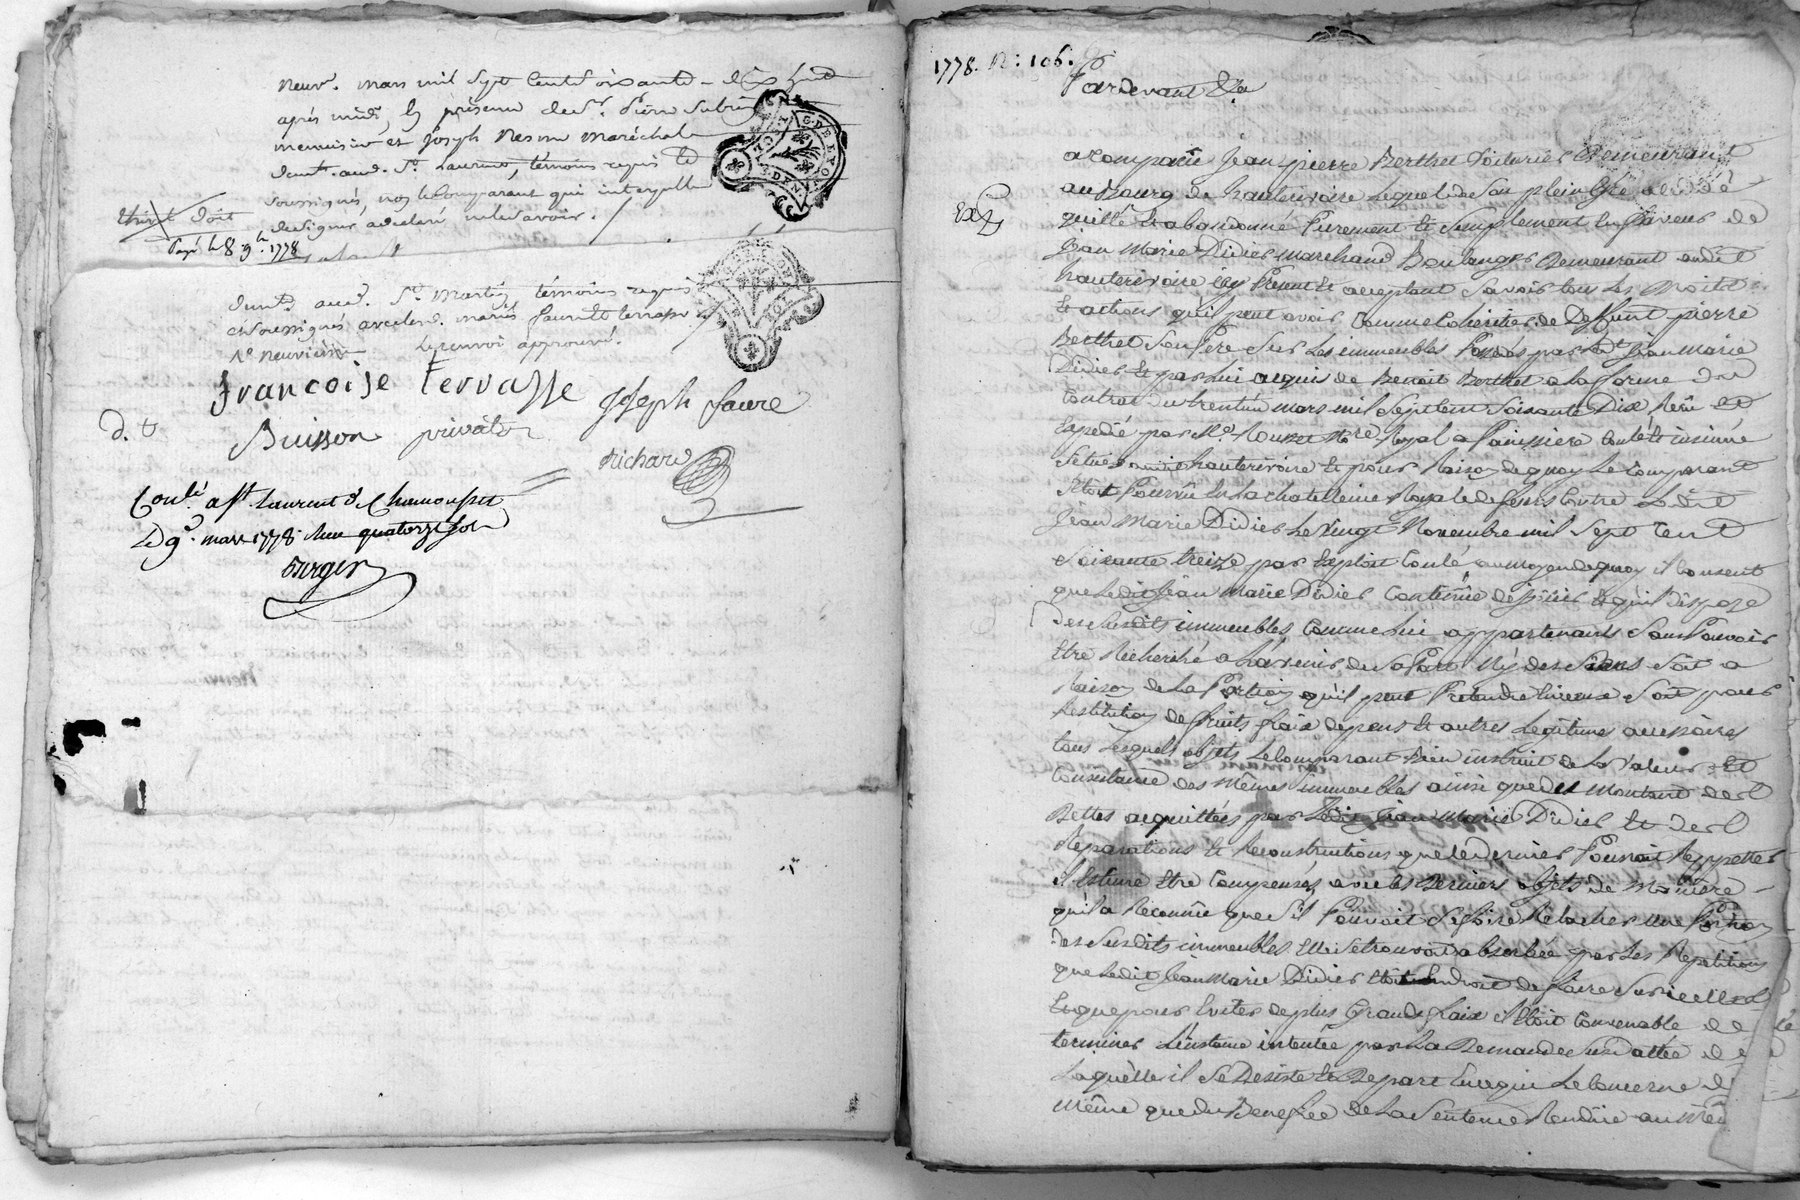 neuf. mars mil sept cent soixante-dix huit
après midi, en présence de Sr. Pierre Subrin
menuisier et Joseph Nesme Maréchal
demt. aud. St. Laurent, témoins requis et
soussignés, non le comparant qui interpellé
de signer a déclaré ne le savoir.
doit
Payé le 8 9bre. 1778
demt. aud. St. Martin témoins requis
et soussignés avec led. mariés faure et terrasse
Le renvoi approuvé.
francoise Terrasse
Joseph faure
d. t
Buisson
Richard
Conlé a St. Laurent de Chamousset
Le 9e. mars 1778. Reçu quatorze sols
1778. N: 106.
Pardevant &a
Exp
a comparü Jean pierre Berthet Voiturier Demeurant
au Bourg de hauterivoire Lequel de Son plein Gré a Cédé
quitté et abandonné Purement et Simplement En faveur de
Jean Marie Didier marchand Boulanger Demeurant audit
hauterivoire icy Présent et acceptant Savoir tous Les Droits
et actions qu'il peut avoir Comme Cohéritier de Deffunt pierre
Berthet Son Père Sur Les immeubles Possédés par ledt Jean Marie
Didier et par Lui acquis de Benoit Berthet a La forme du
Contrat du trentun mars mil Sept Cent Soixante Dix Reçu et
Expédié par Me. Nore Royal a Panissiere Controlé insinué
Situés audit hauterivoire et pour Raison de quoy Le Comparant
S'étoit Pourvu En La chatellenie Royale de Contre Ledit
Jean Marie Didier Le Vingt Novembre mil Sept Cent
Soixante treize par Exploit Conlé au moyen de quoy il Consent
que Ledit Jean Marie Didier Continüe de joüir et qu'il dispose
des Susdits immeubles Comme Lui appartenants Sans Pouvoir
Etre Recherché a L'avenir de Sa Part Ny des Siens Soit a
Raison de La Portion qu'il peut Prétendre Soit pour
Restitution de fruits fraix depens et autres Legitimes accessoires
tous Lesquels objets Le Comparant Bien instruit de La Valeur Et
Consistance des Mêmes immeubles ainsi que du Montant des
Dettes acquittées par Ledit Jean Marie Didier et des
Réparations et Reconstructions que ce dernier Pouroit Reppetter
il Estime Etre Compensés avec les Derniers objets De Maniere
qu'il a Reconnüe que S'il Pouvoit Se faire Relacher une Portion
des Susdits immeubles Elle Se trouveroit absorbée par Les Repetitions
que Ledit Jean Marie Didier En droit de faire Sur icelle
Et que pour Eviter de plus Grands fraix il Etoit Convenable de
terminer L'instance intentée par La Demande Susdattée de
Laquelle il Se Desiste et Depart En ce qui Le Concerne
Même que du Benefice de La Sentence Rendüe au